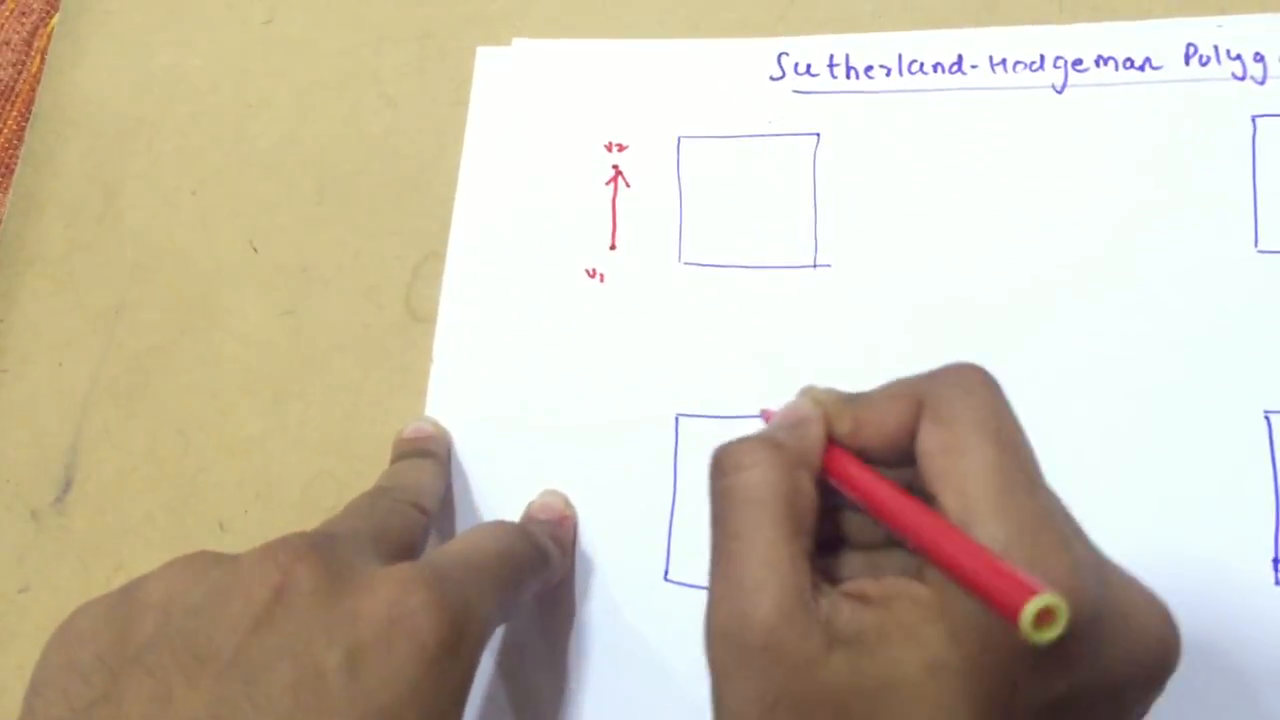 Sutherland-Hodgeman Polyg
v2
v1